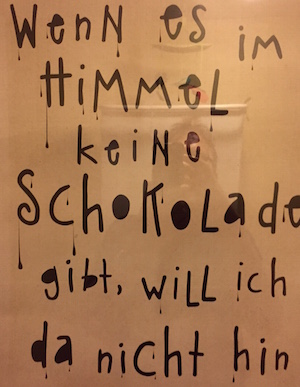 WENN ES iM
HiMMEL
keiNe
SCHOKOLADe
gibt, WiLL ich
da nicht hin